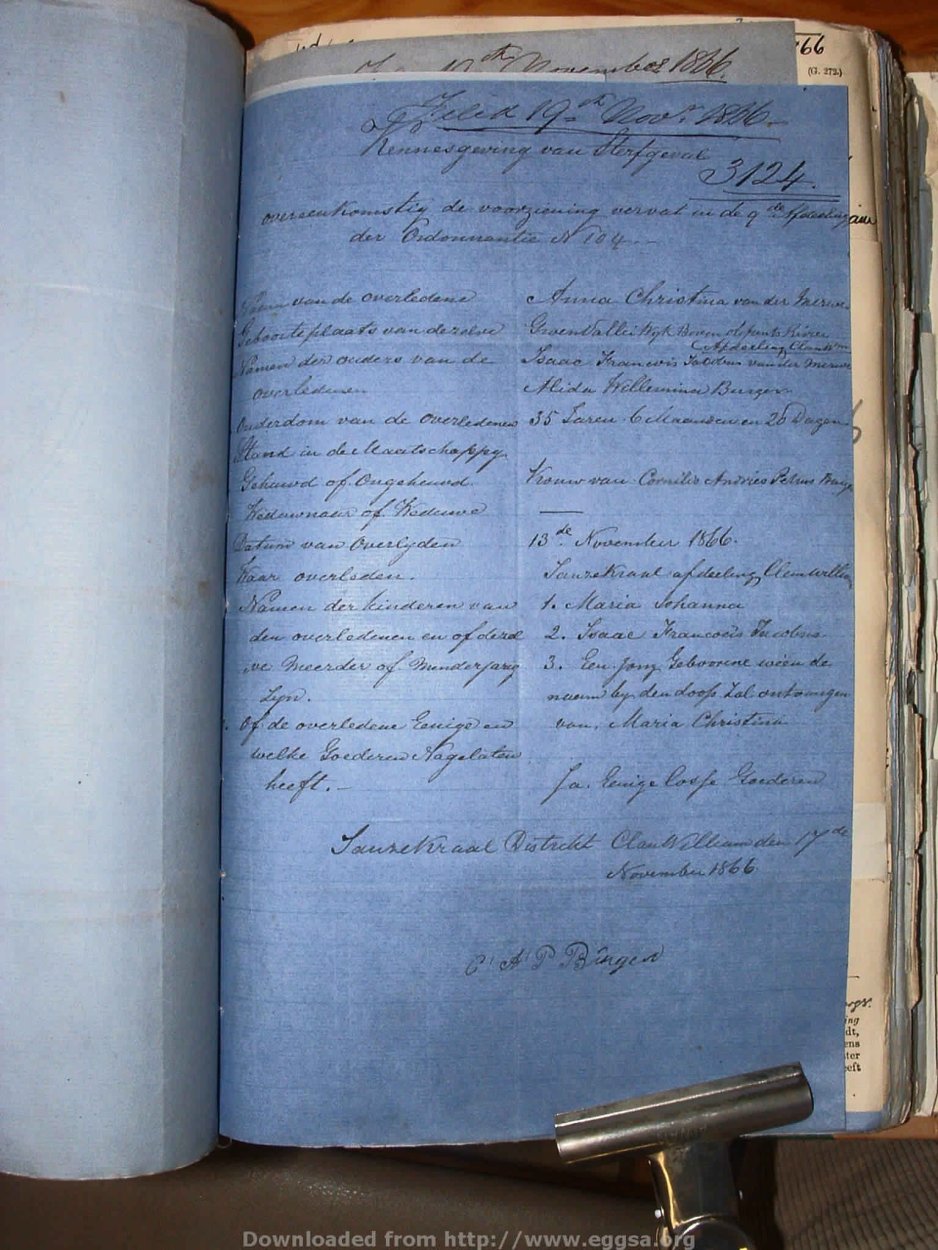 November 1866
66
(G. 272.)
Filed 19th Novr. 1866.
Kennesgeving van Sterfgeval
3124.
overeenkomstig de voorziening vervat in de 9de Afdeeling
der Ordonnantie N 104.
Naam van de overledene Anna Christina van der Merwe
Geboorteplaats van dezelve Wyk Boven olifants Rivier
Afdeeling ClanWm
Namen der ouders van de Isaac Francois Jacobus van der Merwe
overledenen Alida Willemina Burger
Ouderdom van de overledenen 35 Jaren 6 Maanden en 26 Dagen
Stand in de Maatschappy
Gehuwd of Ongehuwd Vrouw van Cornilis Andries Petrus
Weduwnaar of Weduwe —
Datum van Overlyden 13de November 1866.
Waar overleden. afdeeling Clanwilliam
Namen der kinderen van 1. Maria Johanna
den overledenen en of derzel 2. Isaac Francois Jacobus
ve Meerder of Minderjarig 3. Een jong Geboorne wien de
Zyn. naam by den doop Zal ontvangen
of de overledene Eenige en van, Maria Christina
welke Goederen Nagelaten
heeft.- Ja. Eenige losse Goederen
Distrikt ClanWilliam den 17de
November 1866
C A P Burger
ing
dt,
ens
ter
eeft
Downloaded from http://www.eggsa.org